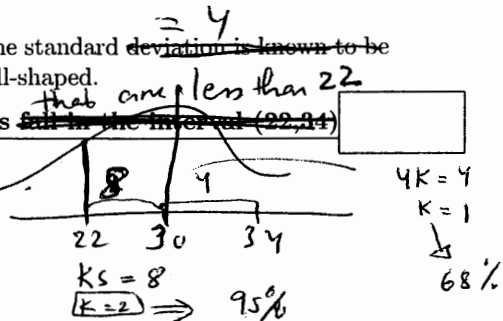 = 4
ne standard deviation is known to be
ll-shaped.
that are less than 22
s fall in the interval (22,34)
8 4
22 30 34
4K = 4
K = 1
68%
KS = 8
K = 2 ⟹ 95%